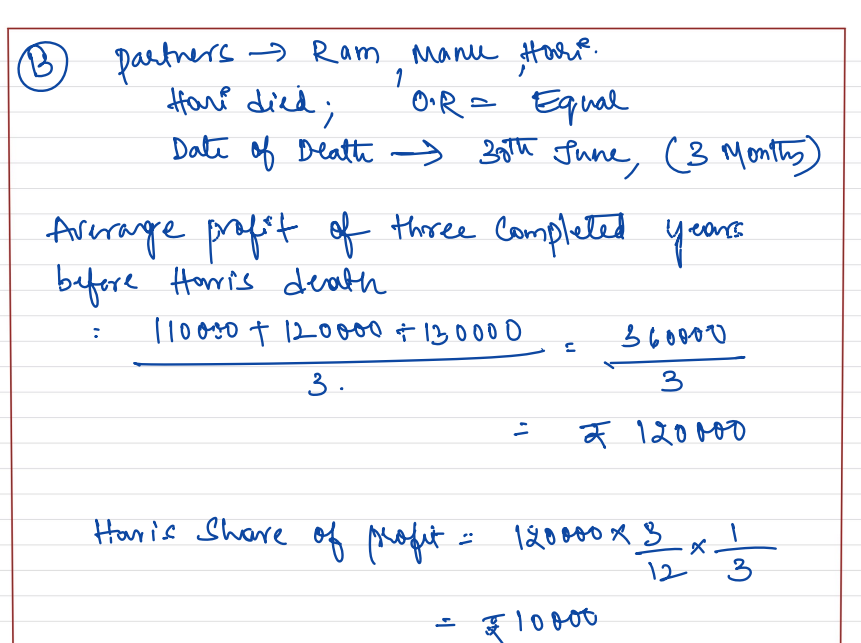 B partners → Ram, Manu, Hari.
Hari died; O.R = Equal
Date of Death → 30th June, (3 Months)
Average profit of three Completed years
before Harris death
= 110000 + 120000 + 130000 / 3. = 360000 / 3
= ₹ 120000
Haris Share of profit = 120000 × 3/12 × 1/3
= ₹ 10000